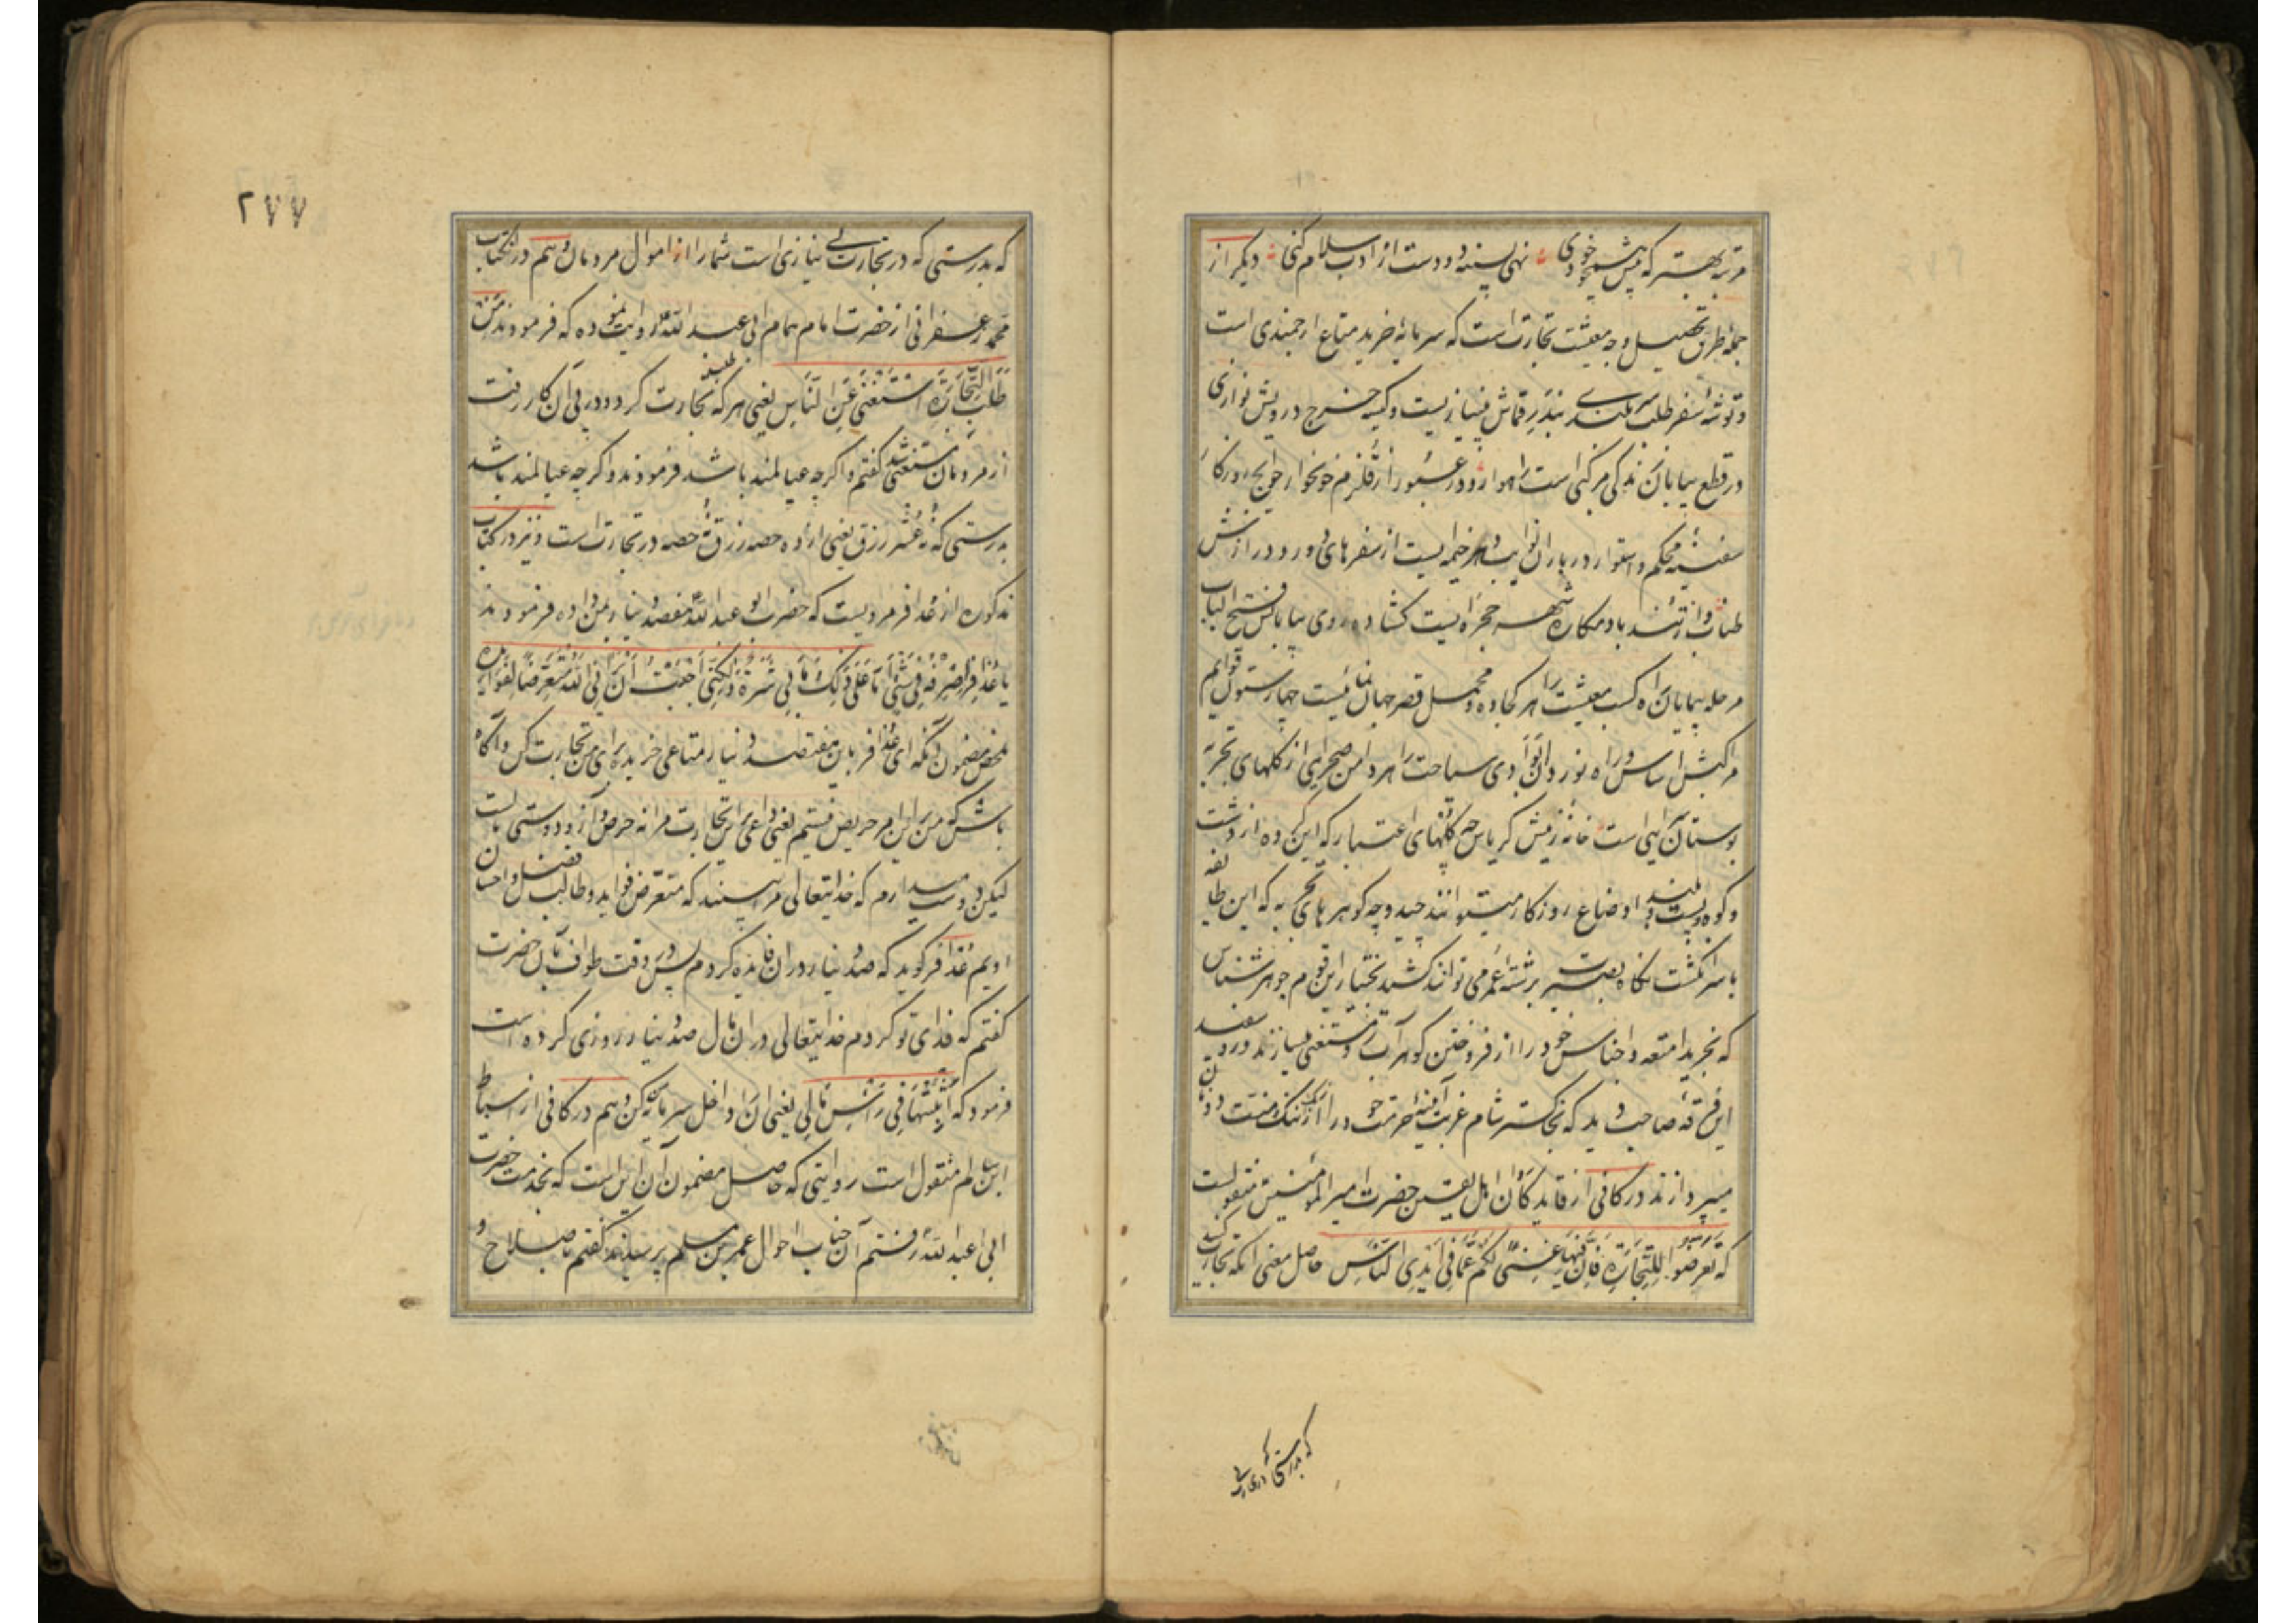 مرتبه بهتر که پیش همچو خودی نهی بسینه دو دست از ادب سلام کنی دیگر از
جمله طرق تحصیل وجه معیشت تجارت است که سرمایهٔ خرید متاع ارجمندی است
و توشهٔ سفر طلب سربلندی بندر قماش بینیازیست و کیسه خرج درویش نوازی
در قطع بیابان زندگی مرکبی است راهوار و در عبور از قلزم خونخوار حوایج
سفینهٔ محکم و استوار در باران نوایب هر خیمه ایست از سفرهای دور و دراز
طناب و از تند باد مکاره شهر حجره ایست کشاده روی بیابانش فتح الباب
مرحله پیمایان راه کسب معیشت را هر کجاوه و محمل قصر جهان نمائیست چهار ستون قوایم
مرکبش اساس و راه نوردان وادی سیاحت را هر دامن صحرایی از گلهای تجربه
بوستان آیینی است خانه زینش کریاس چه گلهای اعتبار که این گروه از دشت
و کوه و پست و بلند اوضاع روزگار میتوانند چید و چه گوهرهای تجربه که این طایفه
با سر انگشت نگاه بصیرت بر رشتهٔ عمر می توانند کشید بختیار این قوم جوهر شناس
که بخرید امتعه و اجناس خود را از فروختن گوهر آب رو مستغنی میسازند و روسفید
این فرقه صاحب دید که بخاکستر شام غربت آیینهٔ حرمت خود را از زنگ منت دونان
میپردازند در کافی از قاید کاروان اهل یقین حضرت امیر المؤمنین منقولست
که تعرضوا للتجارة فان فیها غنی لکم عما فی ایدی الناس حاصل معنی آنکه تجارت کنید
که بدرستی که در تجارت بی
۲۷۷
که بدرستی که در تجارت بی نیازی است شما را از اموال مردمان و هم در آن کتاب
محمد زعفرانی از حضرت امام همام ابی عبد الله روایت نموده که فرمودند من
طلب التجارة استغنی عن الناس یعنی هر که طلب تجارت کرد و در پی آن کار رفت
از مردمان مستغنی شد گفتم و اگرچه عیالمند باشد فرمودند و اگرچه عیالمند باشد
بدرستی که نه عشر رزق یعنی از ده حصه رزق نه حصه در تجارت است و نیز در کتاب
مذکور از عذافر مرویست که حضرت ابو عبد الله هفصد دینار بمن داده فرمودند
یا عذافر اصرفه فی شیء اما علی ذلک ما بی شره و لکنی احببت ان یرانی الله متعرضا لفوایده
ملخص مضمون آنکه ای عذافر باین هفتصد دینار متاعی خریده برای من تجارت کن و آگاه
باش که من بر این امر حریص نیستم یعنی داعی بر این تجارت مرا نه حرص و آز و دوستی مالست
لیکن دوست میدارم که خدایتعالی مرا ببیند که متعرض فواید و طالب فضل و احسان
اویم عذافر گوید که صد دینار در ان فایده کردم پس در وقت طواف بآن حضرت
گفتم که فدای تو کردم خدایتعالی در ان مال صد دینار روزی کرده است
فرمود که اثبتها فی راس مالی یعنی ان را داخل سرمایه کن و هم در کافی از اسباط
ابن سالم منقول است روایتی که حاصل مضمون آن این است که بخدمت حضرت
ابی عبد الله رفتم آن جناب احوال عمر بن مسلم پرسیدند گفتم بصلاح و